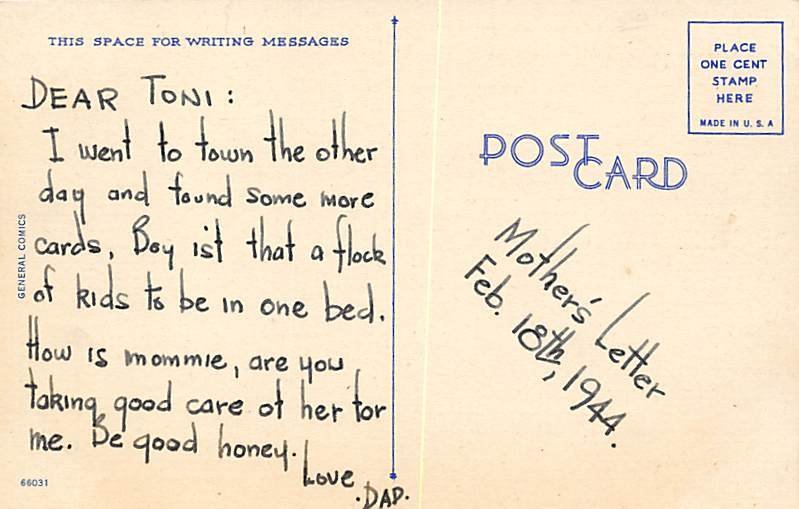 THIS SPACE FOR WRITING MESSAGES
DEAR TONI:
I went to town the other
day and found some more
cards, Boy is't that a flock
of kids to be in one bed.
How is mommie, are you
taking good care of her for
me. Be good honey.
Love
.DAD.
GENERAL COMICS
66031
PLACE
ONE CENT
STAMP
HERE
MADE IN U. S. A
POST
CARD
Mother's Letter
Feb. 18th, 1944.